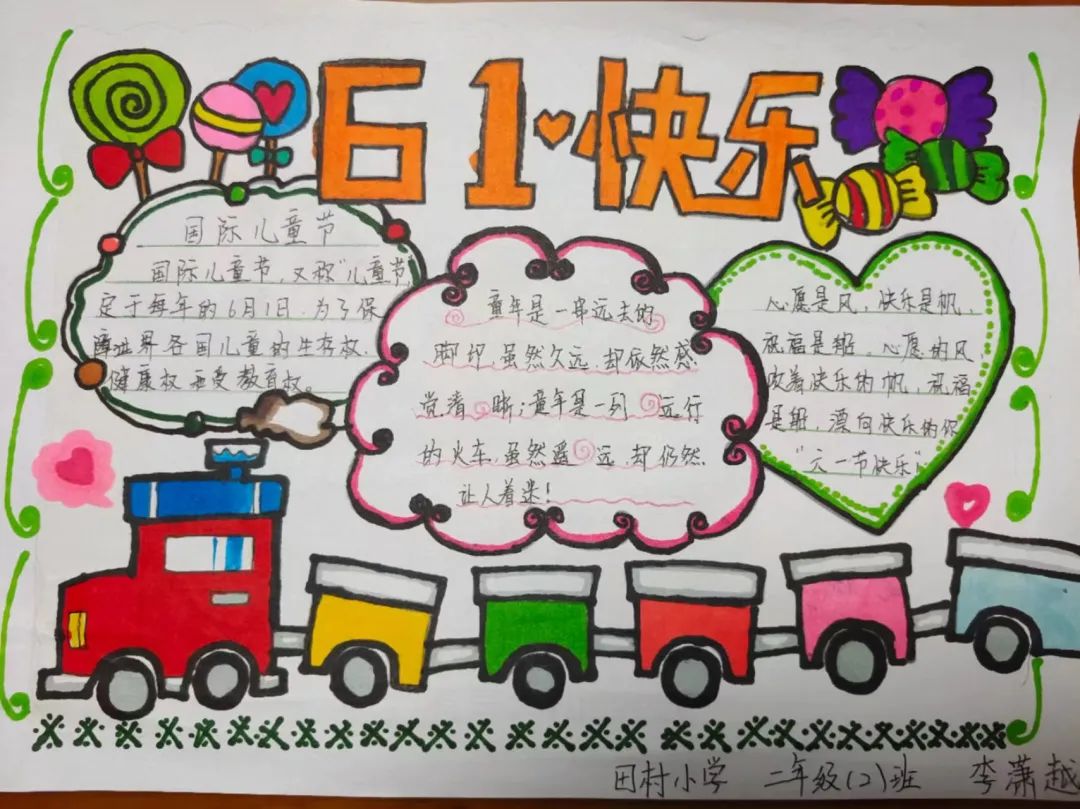 61快乐
国际儿童节
国际儿童节,又称"儿童节"
定于每年的6月1日.为了保
障世界各国儿童的生存权.
健康权 受教育权。
童年是一串远去的
脚印.虽然久远.却依然感
觉清晰;童年是一列远行
的火车.虽然遥远.却仍然
让人着迷!
心愿是风,快乐是帆,
祝福是船。心愿的风
吹着快乐的帆,祝福
是船,漂向快乐的你
"六一节快乐"
田村小学 二年级(2)班 李潇越